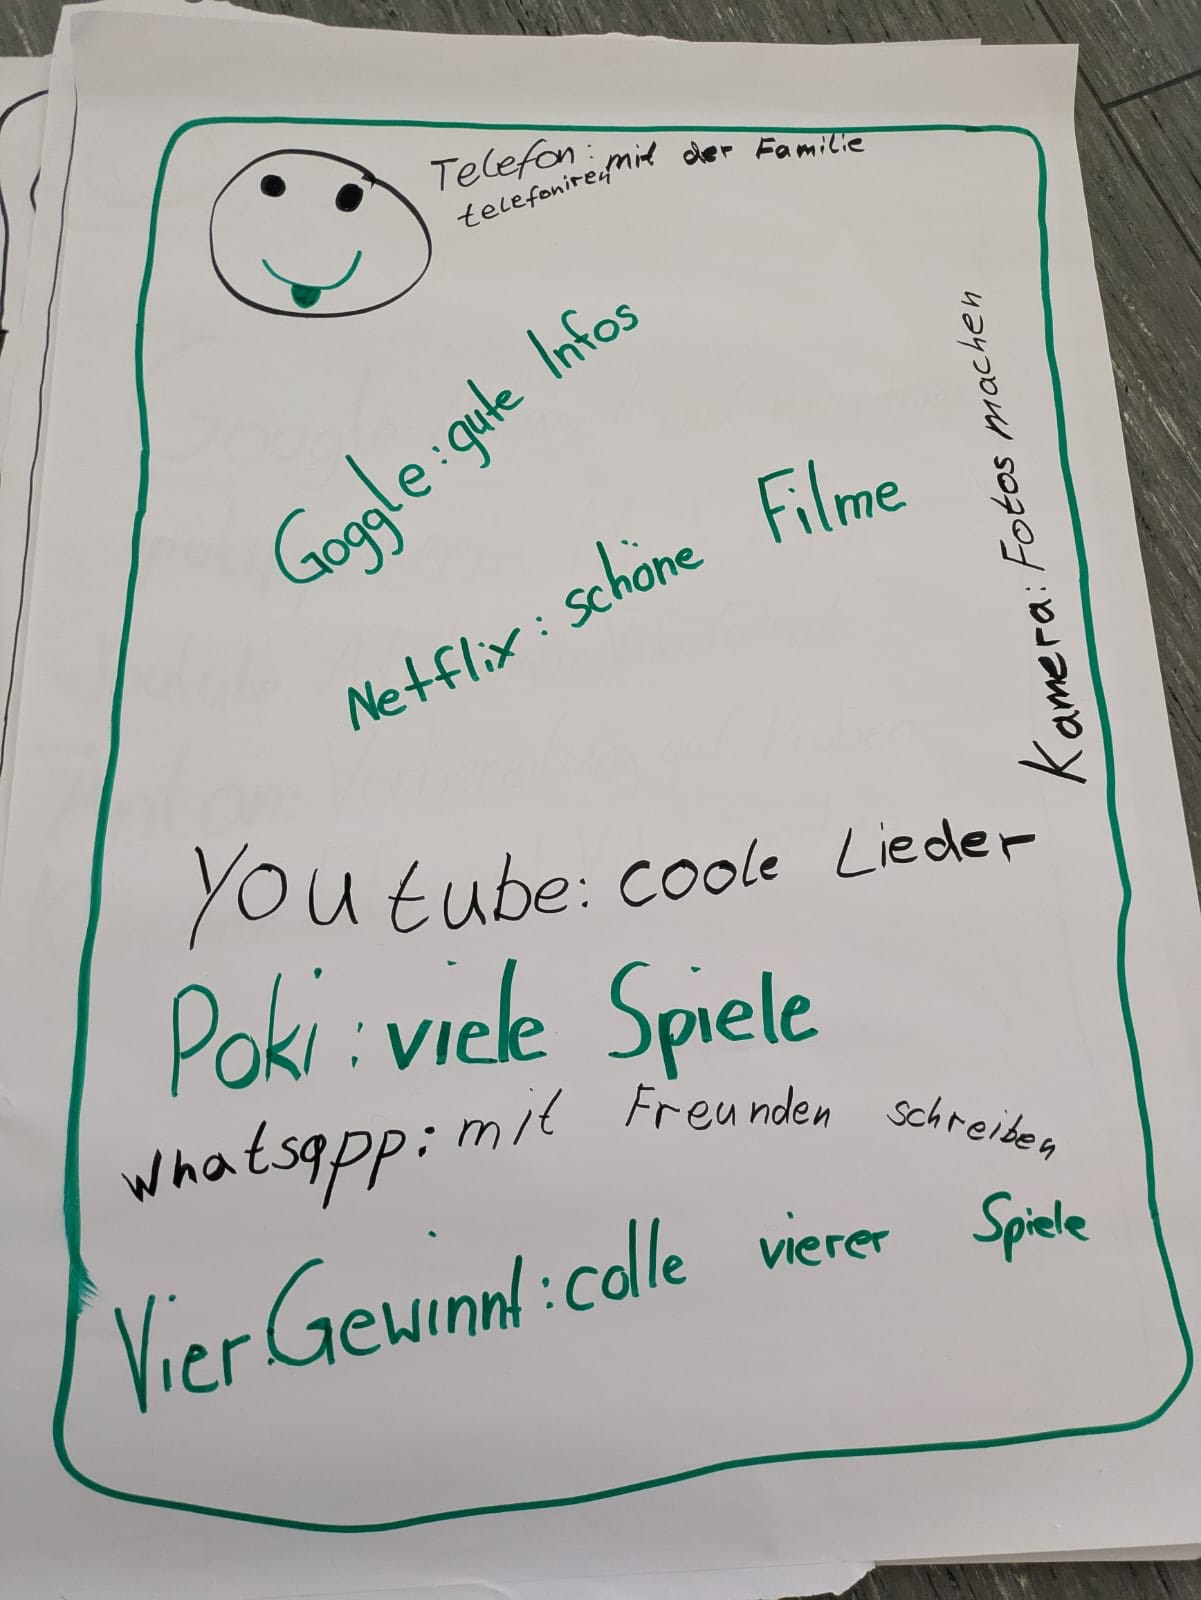 Telefon: mit der Familie
telefoniren
Goggle: gute Infos
Netflix: schöne Filme
Kamera: Fotos machen
Youtube: coole Lieder
Poki: viele Spiele
whatsapp: mit Freunden schreiben
Vier Gewinnt: colle vierer Spiele